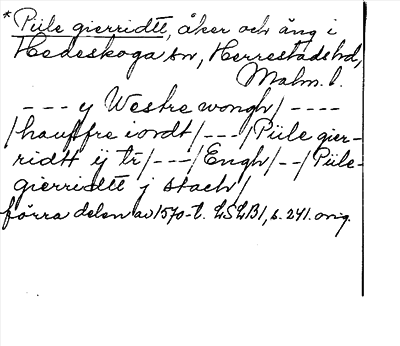 * Piile gierridtt, åker och äng i
Hedeskoga sn, Herrestads hd,
Malm. l.
--- y Westre wongh/ ----
/hauffre iordt/ ---/Piile gier-
ridtt ij tr/---/Engh/--/Piile-
gierridtt j stach/
förra delen av 1570-t. LSLB1, s. 241. orig.